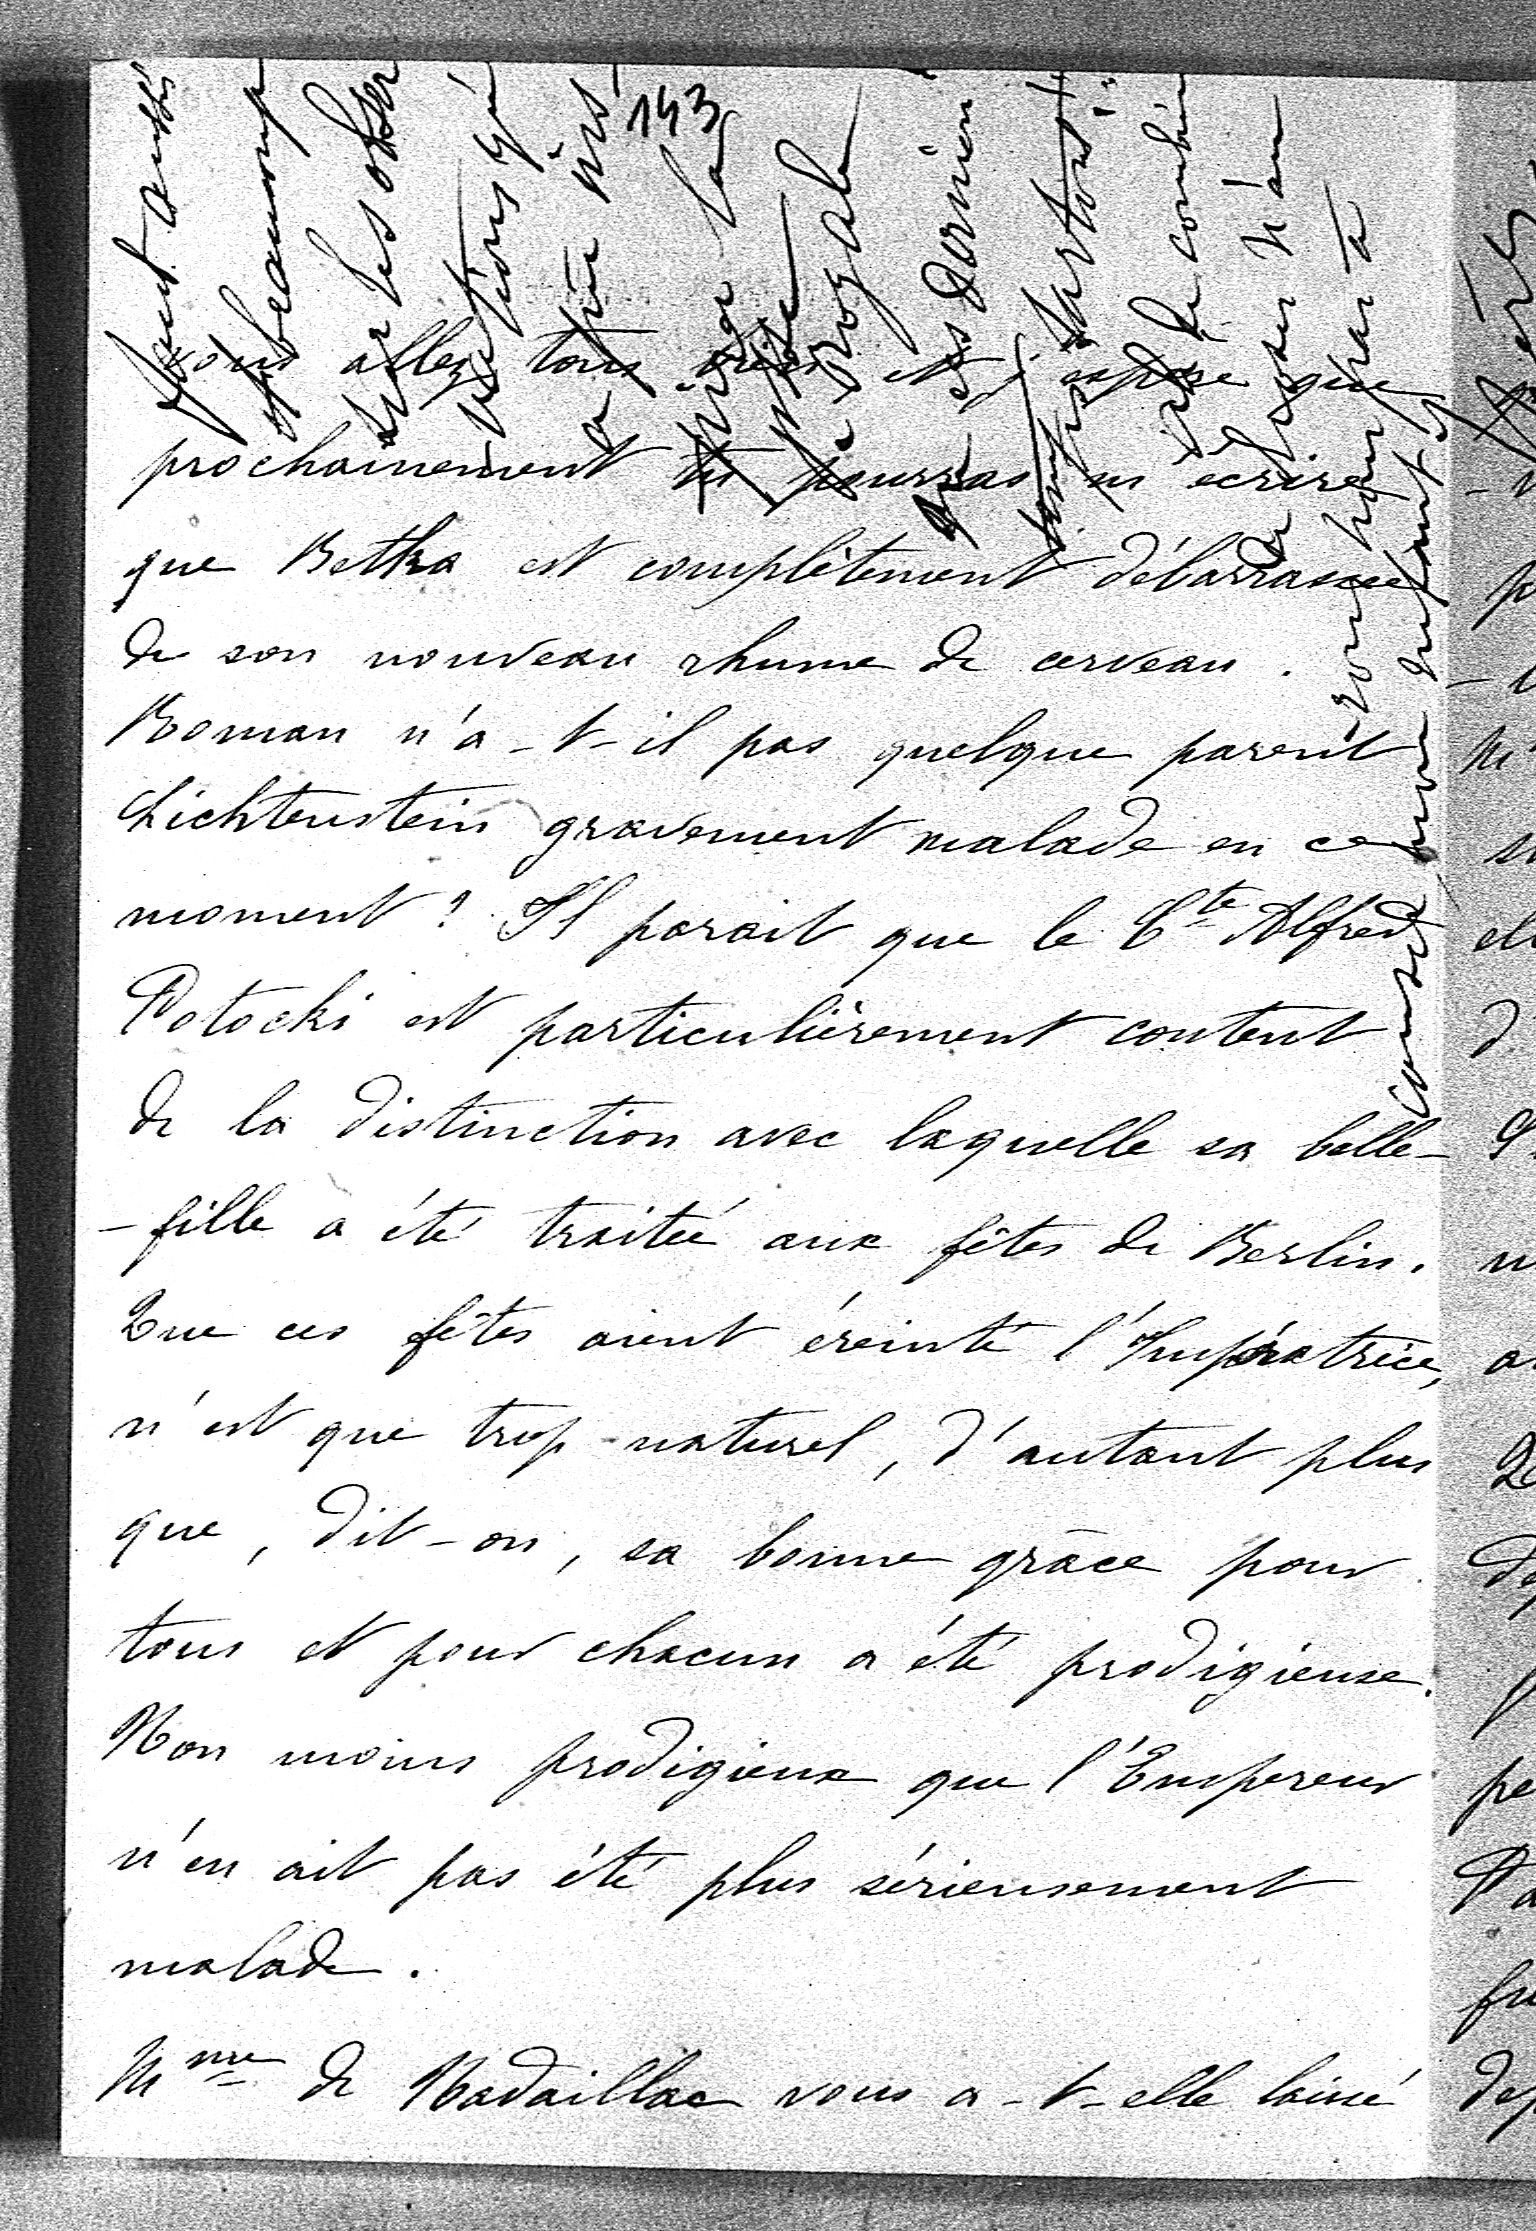 143
vous allez tous bien et j'espère que
prochainement tu pourras m'écrire
que Betka est complètement débarrassée
de son nouveau rhume de cerveau.
Roman n'a-t-il pas quelque parent
Lichtenstein gravement malade en ce
moment? Il parait que le Cte Alfred
Potocki est particulièrement content
de la distinction avec laquelle sa belle-
-fille a été traitée aux fêtes de Berlin.
Que ces fêtes aient éreinté l'Impératrice,
n'est que trop naturel, d'autant plus
que, dit-on, sa bonne grâce pour
tous et pour chacun a été prodigieuse.
Non moins prodigieux que l'Empereur
n'en ait pas été plus sérieusement
malade.
Mme de Nadaillac vous a-t-elle laissé
beaucoup
sur les obser
vations qu
a pu
la
et dernier
temps partout
de combien
n'au
ront pour pas à
comme mon enfant et